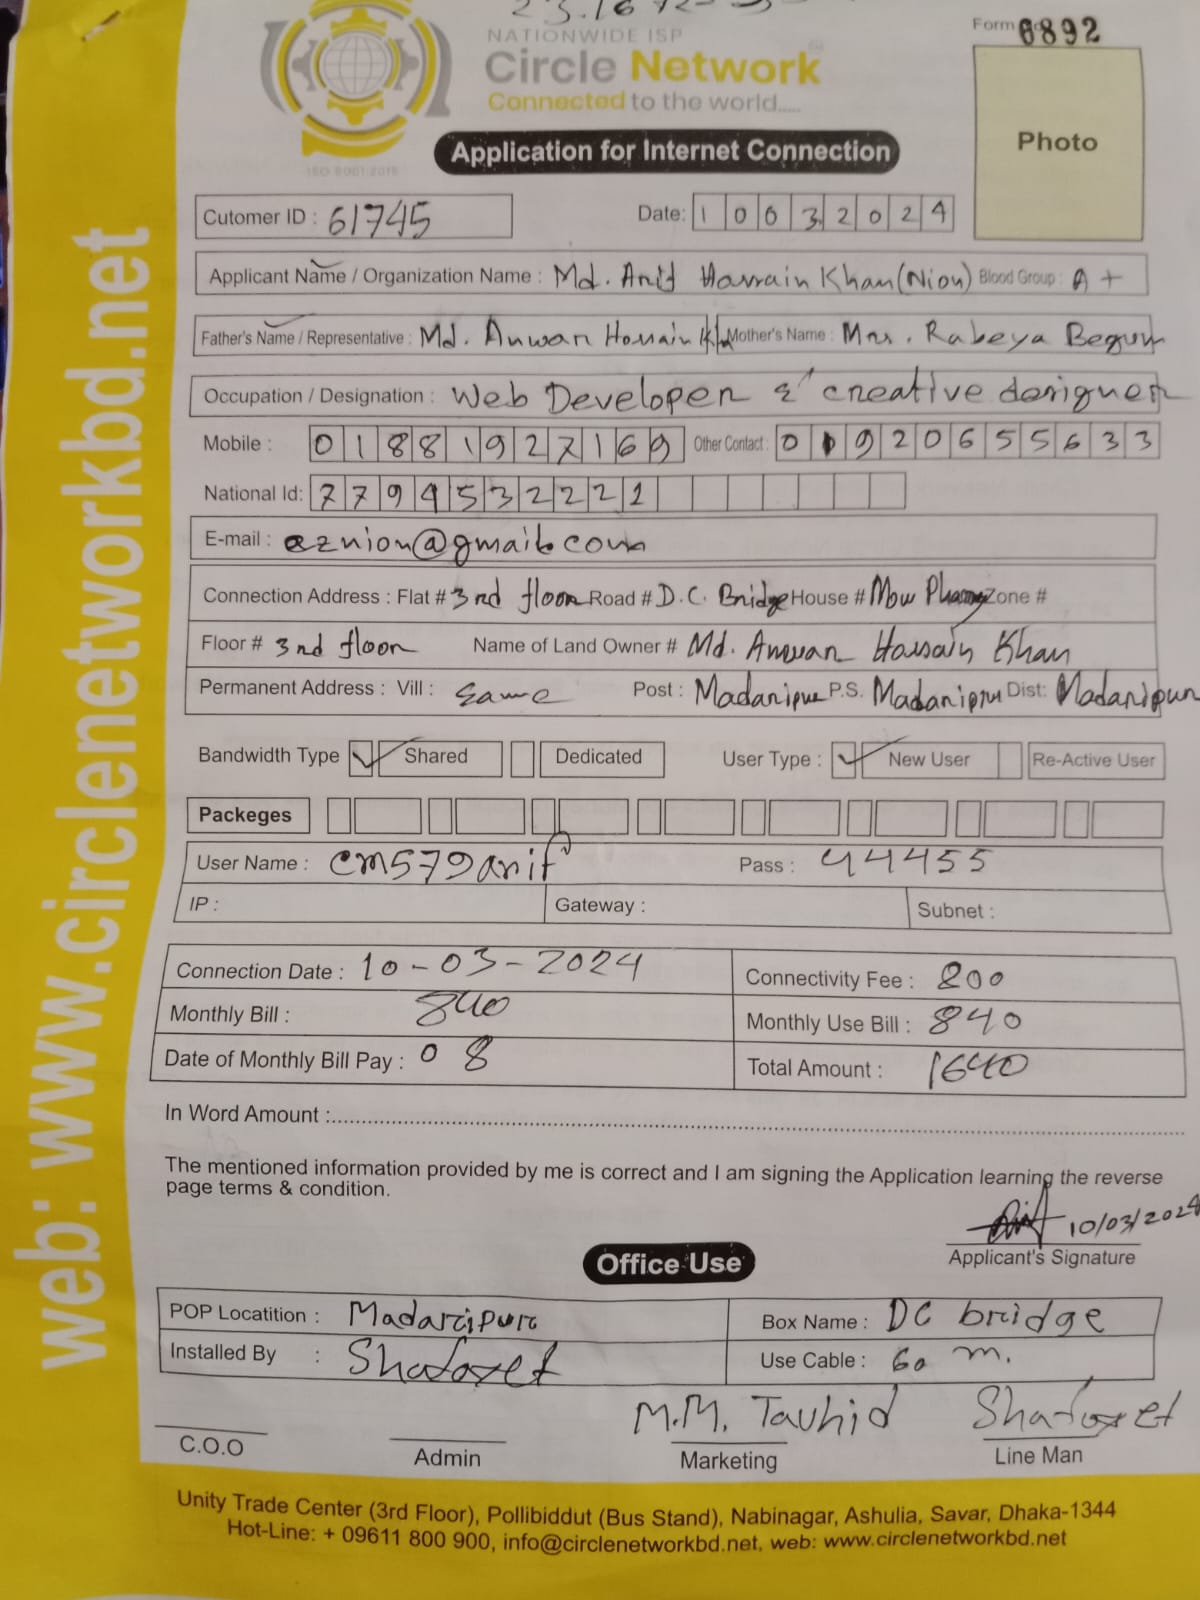 NATIONWIDE ISP
Circle Network
Connected to the world.....
ISO 9001:2015
Form 6892
Photo
Application for Internet Connection
Cutomer ID : 61745
Date: 10032024
Applicant Name / Organization Name : Md. Anif Hossain Khan (Nion) Blood Group : A+
Father's Name / Representative : Md. Anwar Hossain Kh Mother's Name : Mrs. Rabeya Begum
Occupation / Designation : Web Developer & creative designer
Mobile : 01881927169 Other Contact : 01920655633
National Id: 7794532221
E-mail : aznion@gmail.com
Connection Address : Flat # 3rd floor Road # D.C. Bridge House # Zone #
Floor # 3rd floor Name of Land Owner # Md. Anwar Hossain Khan
Permanent Address : Vill : Same Post : Madaripur P.S. Madaripur Dist: Madaripur
Bandwidth Type Shared Dedicated User Type : New User Re-Active User
Packeges
User Name : cm579anif Pass : 44455
IP : Gateway : Subnet :
Connection Date : 10-03-2024 Connectivity Fee : 800
Monthly Bill : 840 Monthly Use Bill : 840
Date of Monthly Bill Pay : 08 Total Amount : 1640
In Word Amount :
The mentioned information provided by me is correct and I am signing the Application learning the reverse
page terms & condition.
10/03/2024
Applicant's Signature
Office Use
POP Locatition : Madaripur Box Name : DC bridge
Installed By : Use Cable : 60 m.
M.M. Tauhid
C.O.O Admin Marketing Line Man
Unity Trade Center (3rd Floor), Pollibiddut (Bus Stand), Nabinagar, Ashulia, Savar, Dhaka-1344
Hot-Line: + 09611 800 900, info@circlenetworkbd.net, web: www.circlenetworkbd.net
web: www.circlenetworkbd.net